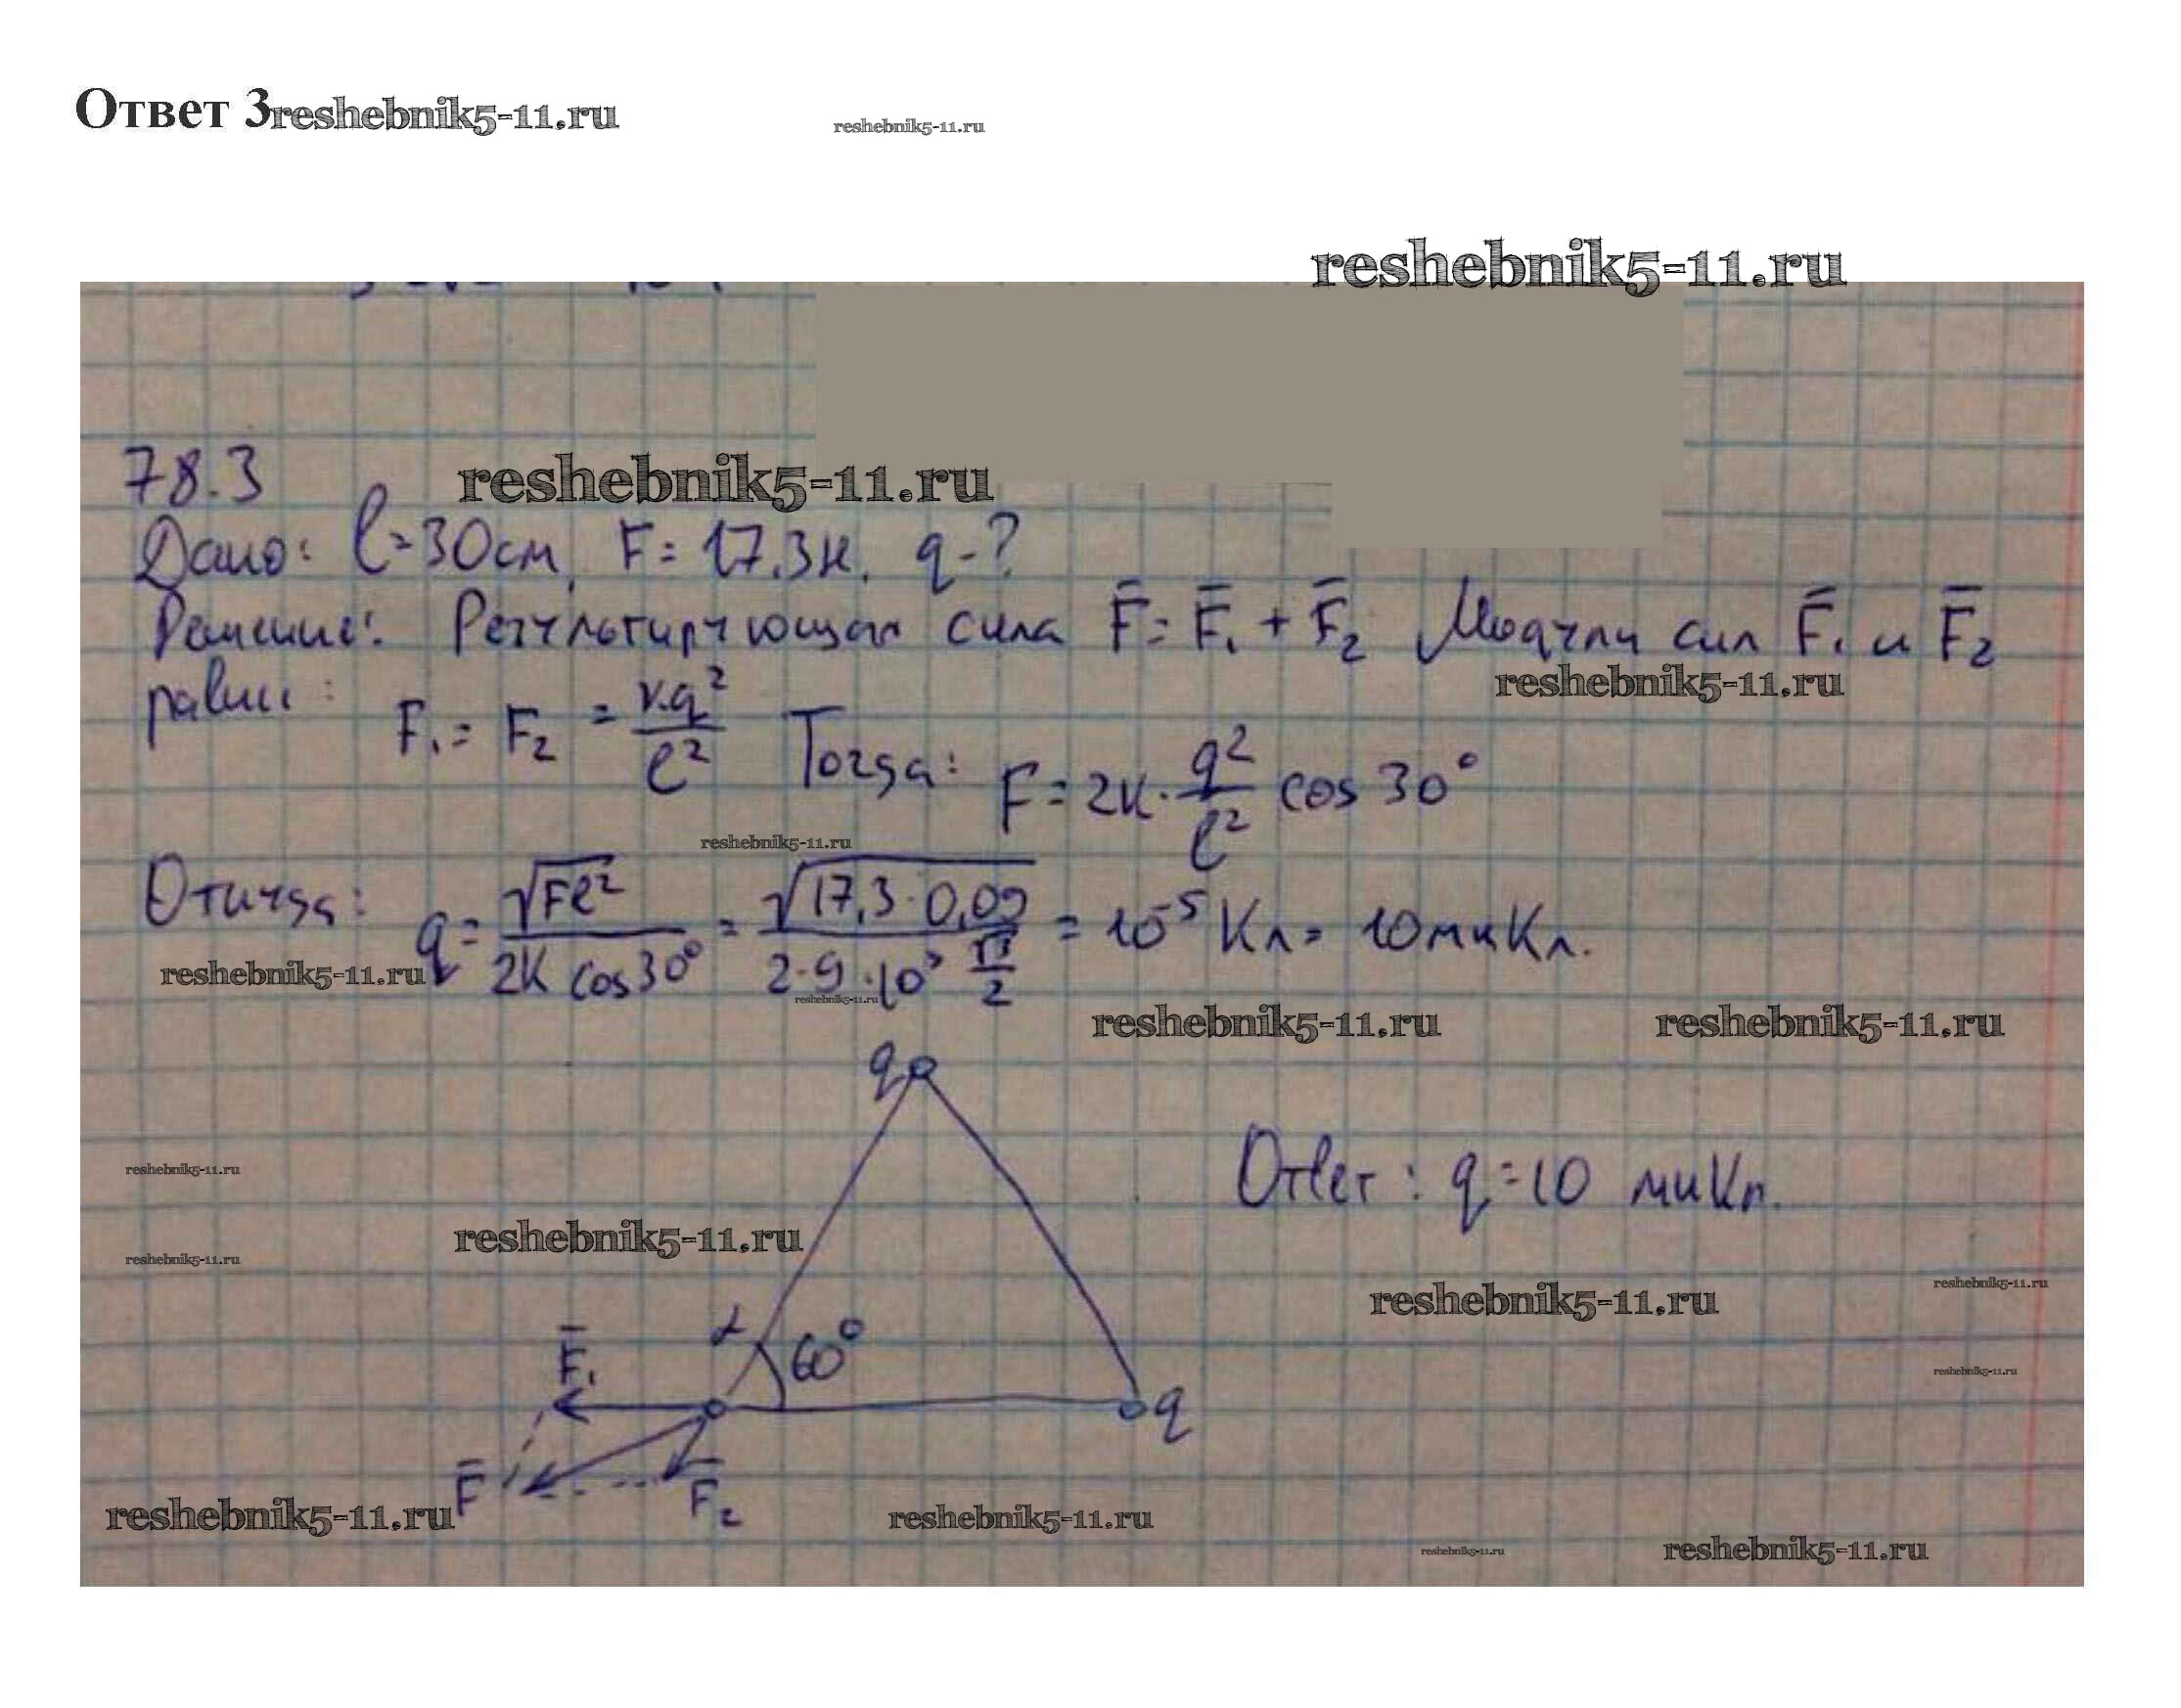 Ответ 3reshebnik5-11.ru
reshebnik5-11.ru
reshebnik5-11.ru
78.3
reshebnik5-11.ru
Дано: l=30см, F=17.3Н. q-?
Решение: Результирующая сила F̄=F̄₁+F̄₂ Модули сил F̄₁ и F̄₂
reshebnik5-11.ru
равны: F₁=F₂=k·q²/l² Тогда: F=2k·q²/l² cos 30°
reshebnik5-11.ru
Откуда: q=√Fl²/2k cos30°=√17,3·0,09/2·9·10⁹ √3/2=10⁻⁵Кл=10мкКл.
reshebnik5-11.ru
reshebnik5-11.ru
reshebnik5-11.ru
reshebnik5-11.ru
q
reshebnik5-11.ru
Ответ: q=10 мкКл.
reshebnik5-11.ru
reshebnik5-11.ru
reshebnik5-11.ru
reshebnik5-11.ru
F̄₁
60°
reshebnik5-11.ru
q
F̄
F̄₂
reshebnik5-11.ru
reshebnik5-11.ru
reshebnik5-11.ru
reshebnik5-11.ru